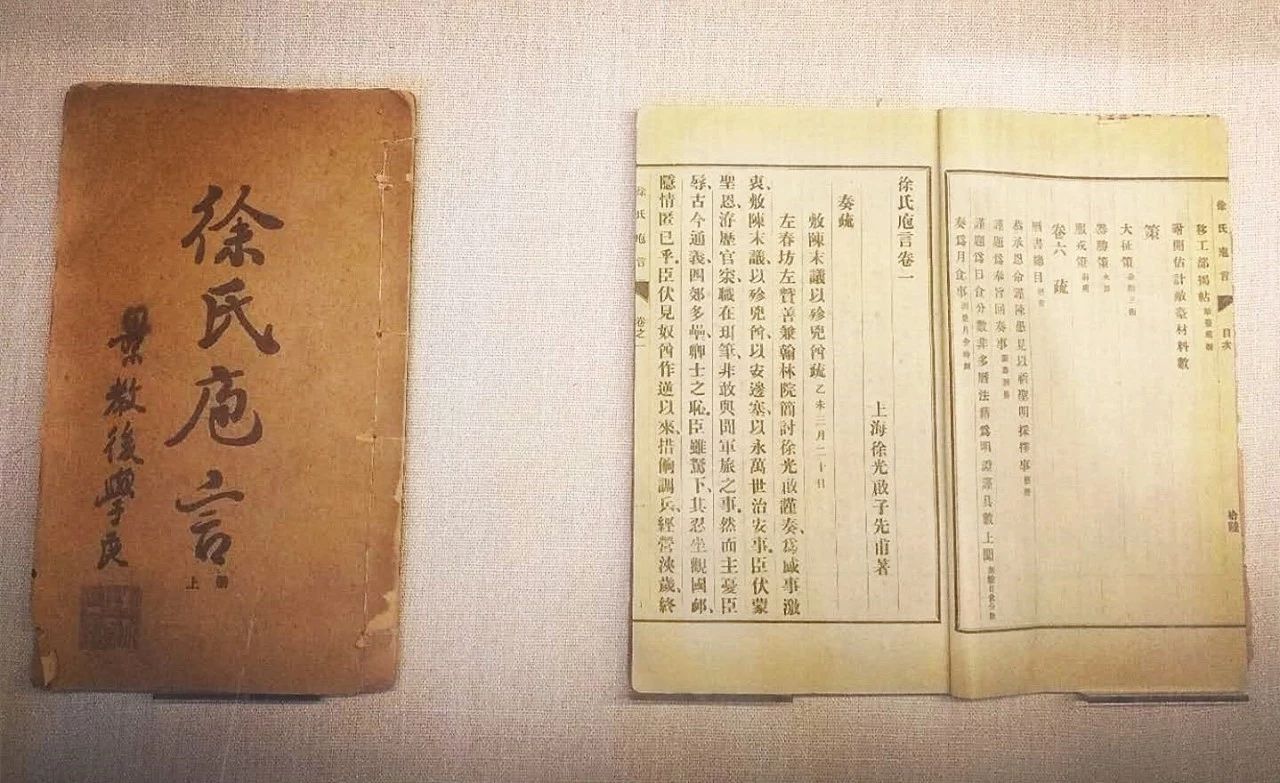 徐氏庖言
上冊
景教後學良
徐氏庖言 目次 拾陸
移工部揭帖
附開估計敵臺材料數
策
大征策
器勝策
服戎策
卷六 疏
曆書總目
恭承恩命謹陳愚見以祈聖明採擇事
謹題為奉旨回奏事
謹題為日食分數非多曆法藉為明證謹具數上聞
奏爲月食事
徐氏庖言卷一
上海徐光啟子先甫著
奏疏
敷陳末議以殄兇酋疏 未三月二十日
左春坊左贊善兼翰林院簡討徐光啟謹奏爲感事激
衷、敷陳末議以殄兇酋、以安邊塞、以永萬世治安事、臣伏蒙
聖恩、洊歷官寀、職在珥筆、非敢與聞軍旅之事、然而主憂臣
辱、古今通義、四郊多壘、卿士之恥、臣雖駑下、其忍坐觀國卹、
隱情匿已乎、臣伏見奴酋作逆以來、措餉調兵、經營浹歲、終
徐氏庖言 卷之一